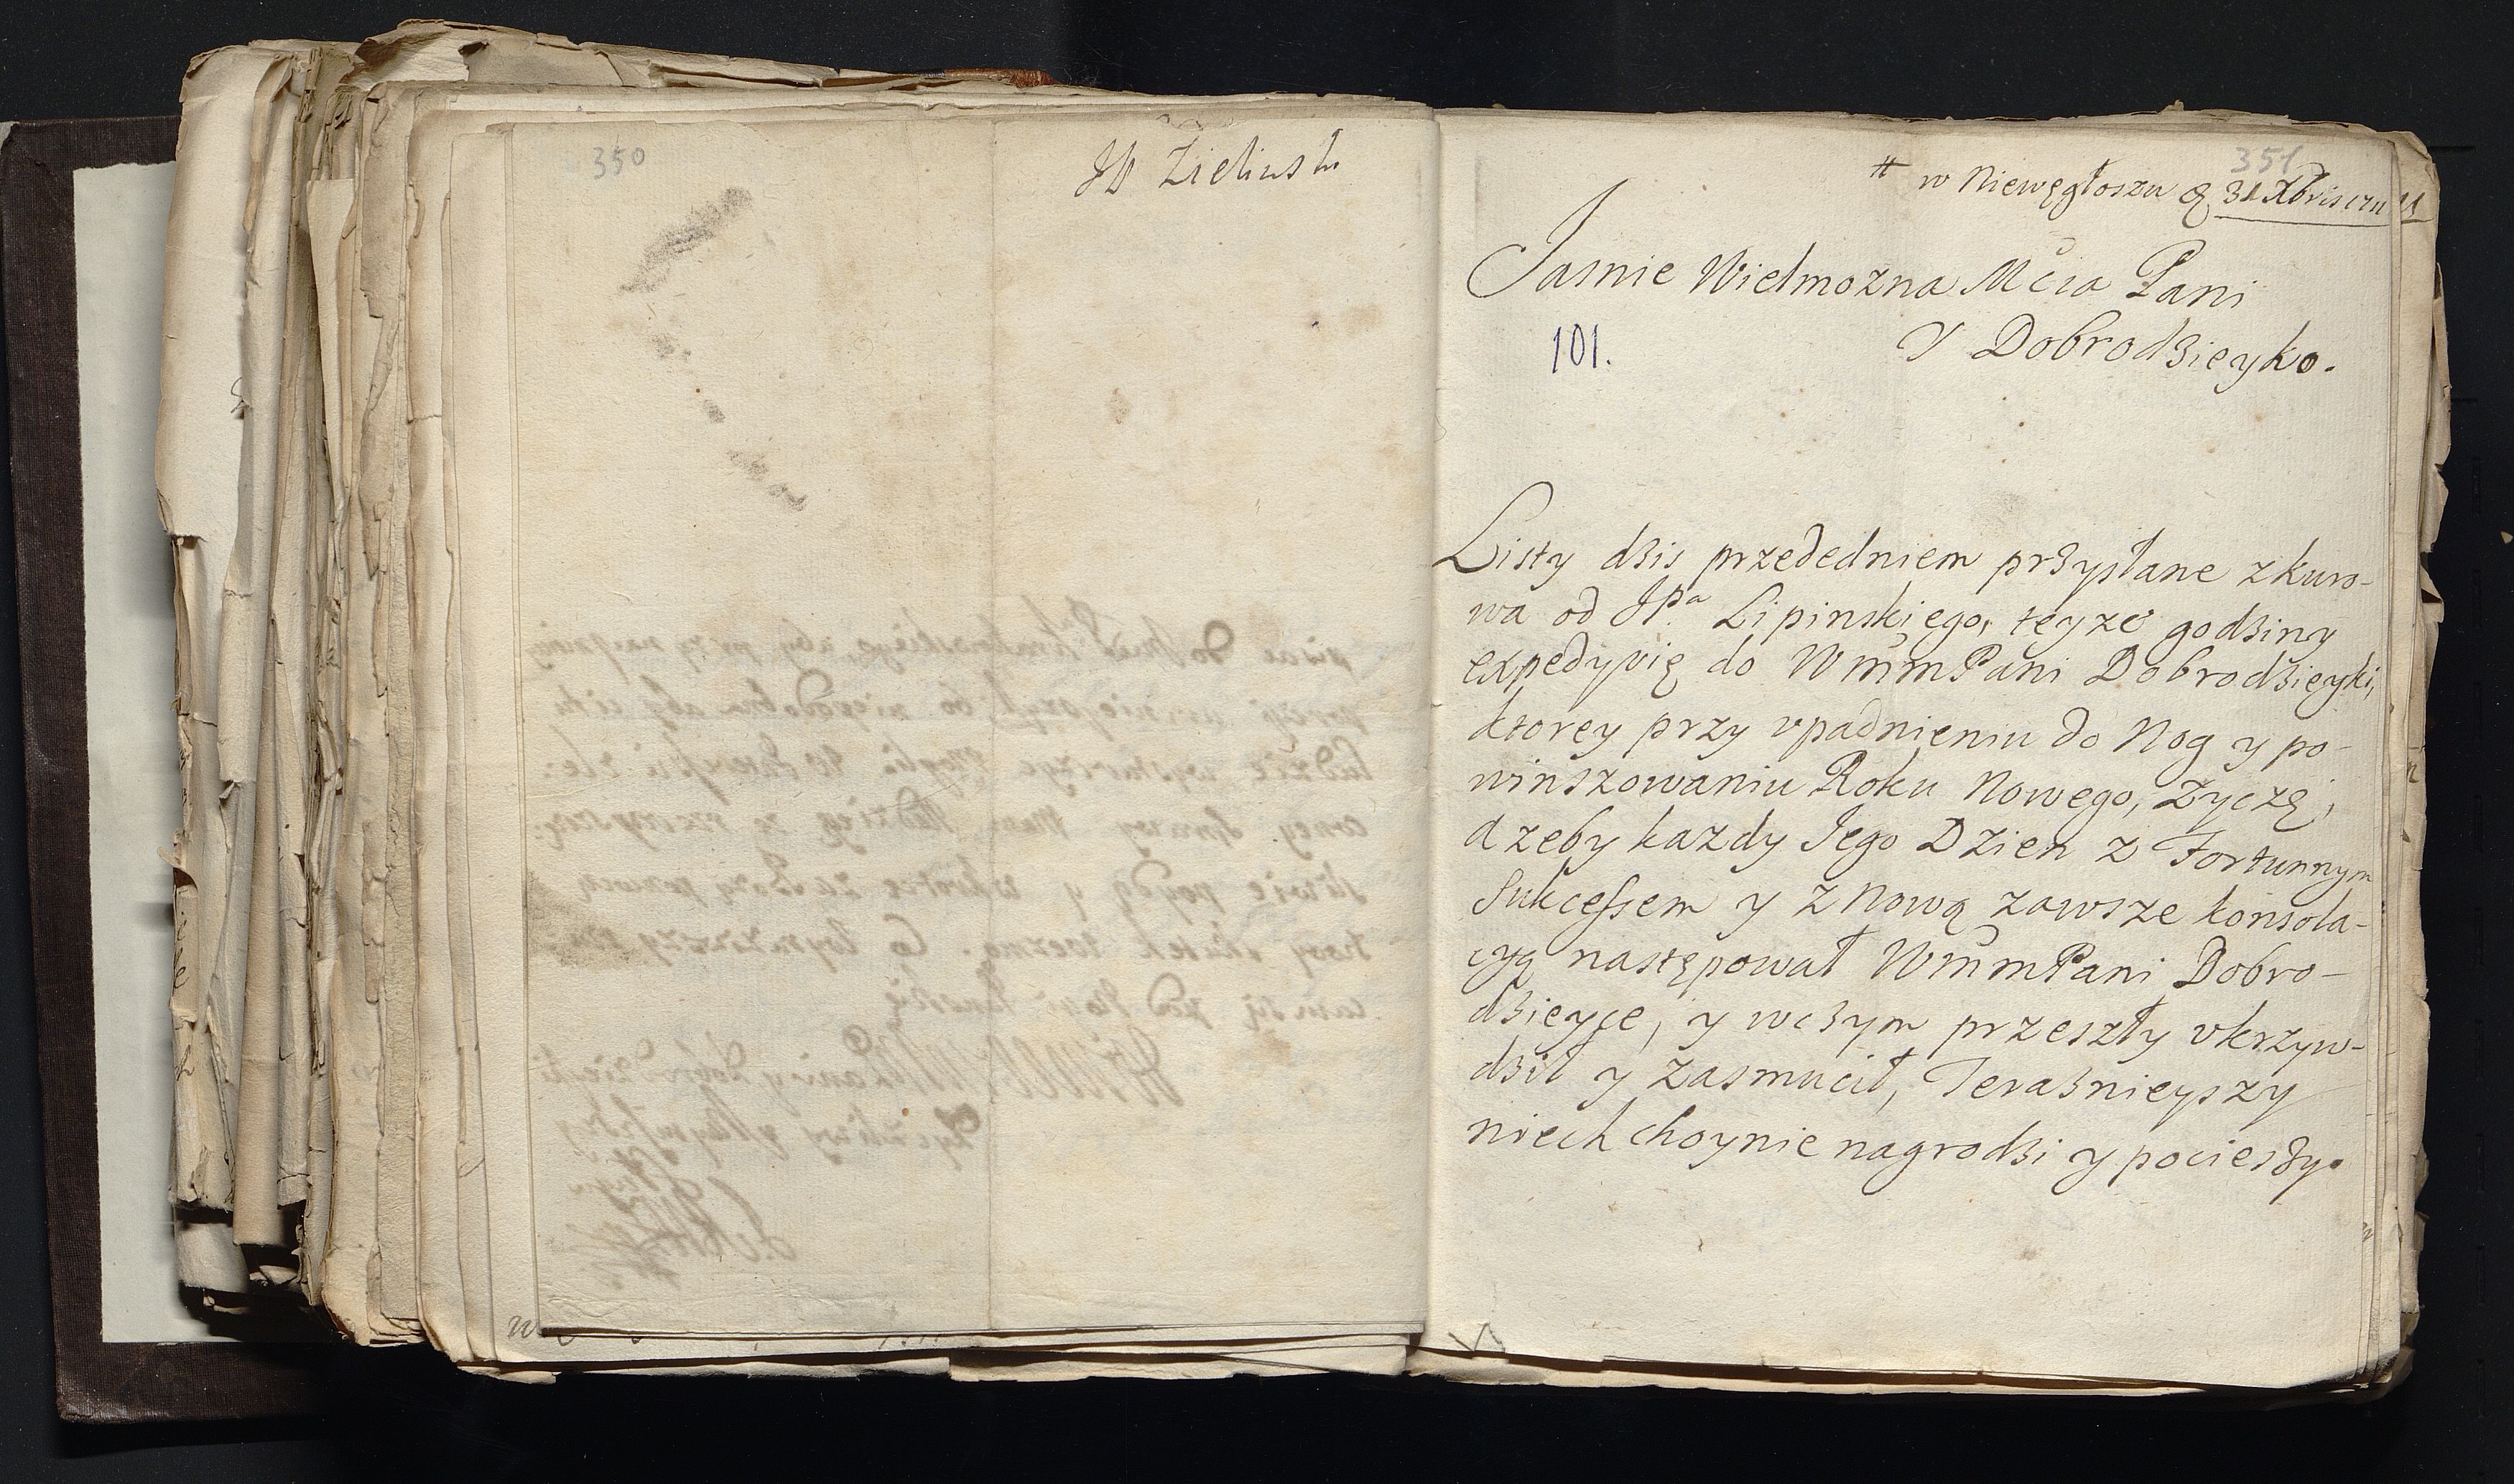 350
Zielinski
351
w Niewęgłoszu 31 Xbris 1711
Jasnie Wielmozna Mcia Pani
Y Dobrodzieyko.
101.
Listy dzis przededniem przysłane z kuro-
wa od JPa Lipinskiego, teyze godziny
expedyvię do WmmPani Dobrodzieyki,
ktorey przy vpadnieniu do Nog y po-
winszowaniu Roku Nowego, Zyczę,
azeby kazdy Jego Dzien z Fortunnym
Sukcessem y z Nową zawsze konsola-
cyą następował WmmPani Dobro-
dzieyce, y wczym przeszły vkrzyw-
dził y zasmucił, Teraznieyszy
niech choynie nagrodzi y pocieszy.